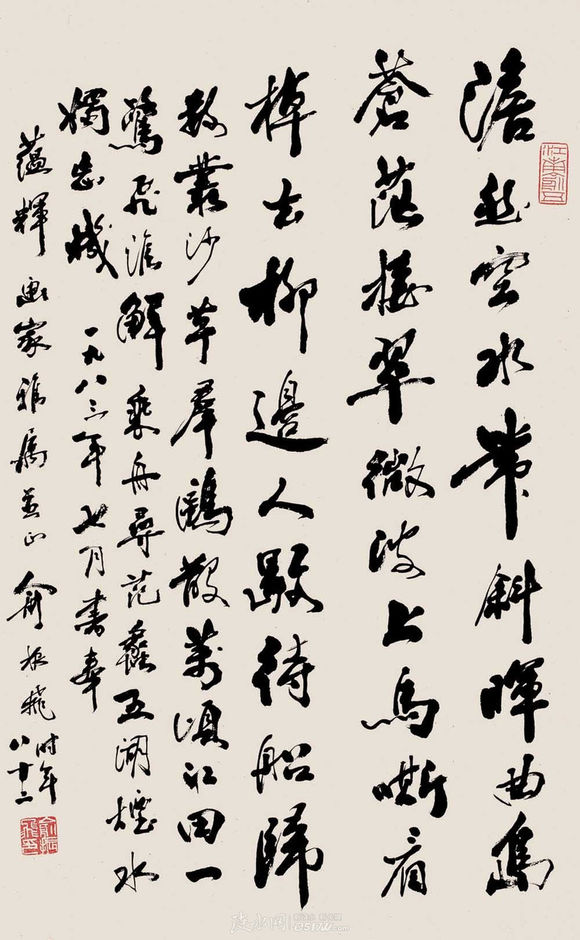 澹然空水帶斜暉曲島
蒼茫接翠微波上馬嘶看
棹去柳邊人歇待船歸
數叢沙草羣鷗散萬頃江田一
鷺飛誰解乘舟尋范蠡五湖煙水
獨忘機 一九八三年七月書奉
蘊輝畫家雅屬並正 俞振飛時年
八十二
江南俞五
俞振飛印